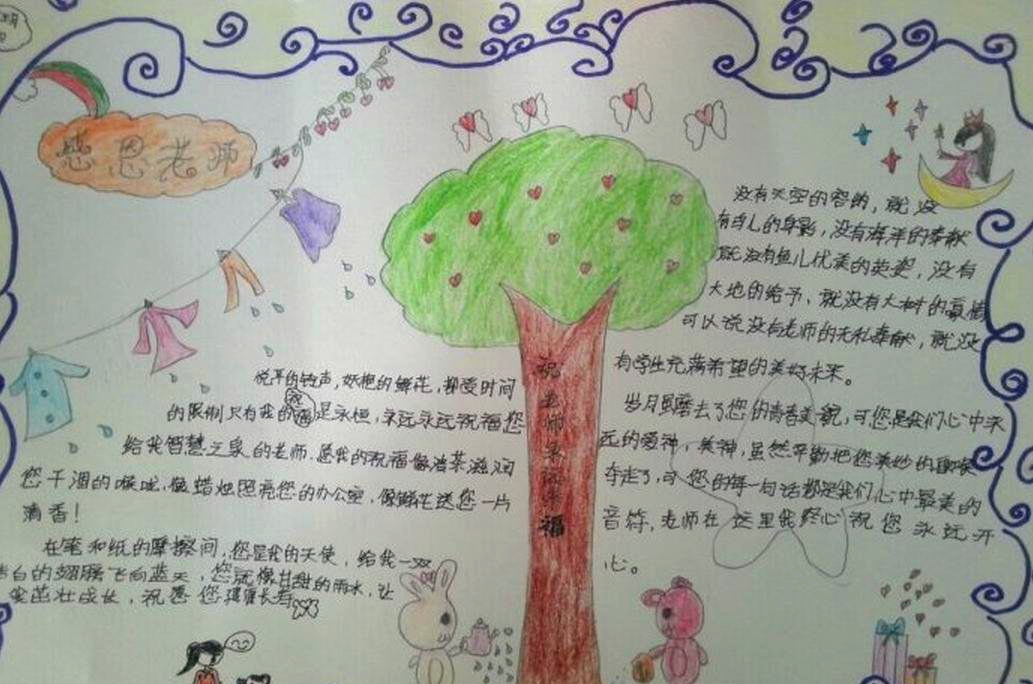 感恩老师
没有天空的容纳，就没
有鸟儿的身影，没有海洋的奉献
就没有鱼儿优美的英姿，没有
大地的给予，就没有大树的豪情
可以说没有老师的无私奉献，就没
有学生充满希望的美好未来。
岁月虽磨去了您的青春美貌，可您是我们心中永
远的爱神，美神，虽然辛勤把您美妙的歌喉
夺走了，可您的每一句话都是我们心中最美的
音符，老师在这里我终心祝您永远开
心。
祝老师幸福
悦耳的铃声，妖艳的鲜花，都受时间
的限制只有我的祝福是永恒，永远永远祝福您
给我智慧之泉的老师，愿我的祝福像清茶滋润
您干涸的喉咙，像蜡烛照亮您的办公室，像鲜花送您一片
清香！
在笔和纸的摩擦间，您是我的天使，给我一双
洁白的翅膀飞向蓝天，您就像甘甜的雨水，让
我茁壮成长，祝愿您健康长寿